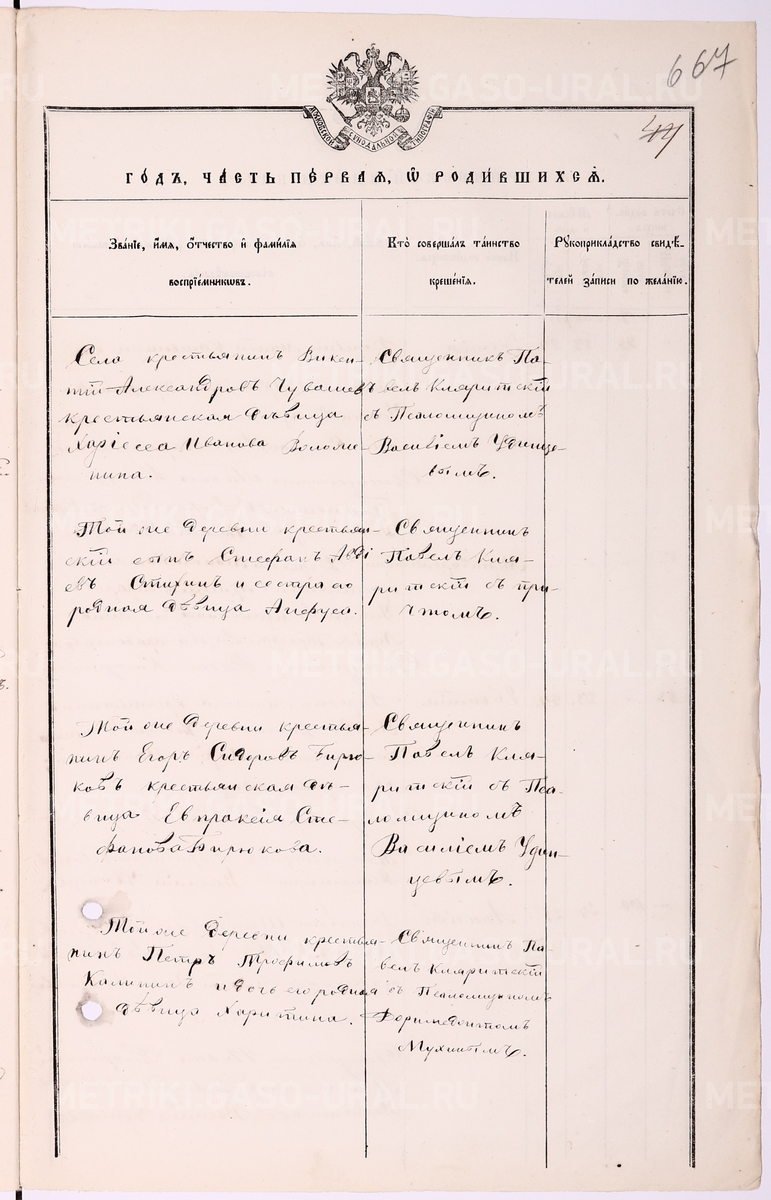 667
44
МОСКОВСКОЙ СѴНОДАЛЬНОЙ ТИПОГРАФІИ
ГО́ДЪ, ЧА́СТЬ ПЕ́РВАЯ, Ѡ҆ РОДИ́ВШИХСѦ.
Зва́ніе, и҆́мя, ѻ҆́тчество и҆ фами́лія
воспріе́мниковъ.
Кто̀ соверша́лъ та́инство
креще́нія.
Рꙋкоприкла́дство свидѣ́-
телей за́писи по жела́нію.
Села крестьянинъ Викен-
тій Александровъ Чувашевъ
крестьянская дѣвица
Хариесса Иванова
нина.
Священникъ Па-
велъ Кляритскій
съ Псаломщикомъ
Василіемъ Удинце-
вымъ.
Той же деревни крестьян-
скій сынъ Стефанъ Авді
евъ Стихинъ и сестра его
родная дѣвица Анфуса.
Священникъ
Павелъ Кля-
ритскій съ при-
чтомъ.
Той же деревни крестья-
нинъ Егоръ Сидоровъ Бирю-
ковъ крестьянская дѣ-
вица Евпраксія Сте-
фанова Бирюкова.
Священникъ
Павелъ Кля-
ритскій съ Пса-
ломщикомъ
Василіемъ Удин-
цевымъ.
Той же деревни крестья-
нинъ Петръ Трофимовъ
Калининъ и дочь его родная
дѣвица Харитина.
Священникъ Па-
велъ Кляритскій
съ Псаломщикомъ
Ферімедонтомъ
Мухинымъ.
METRIKI.GASO-URAL.RU